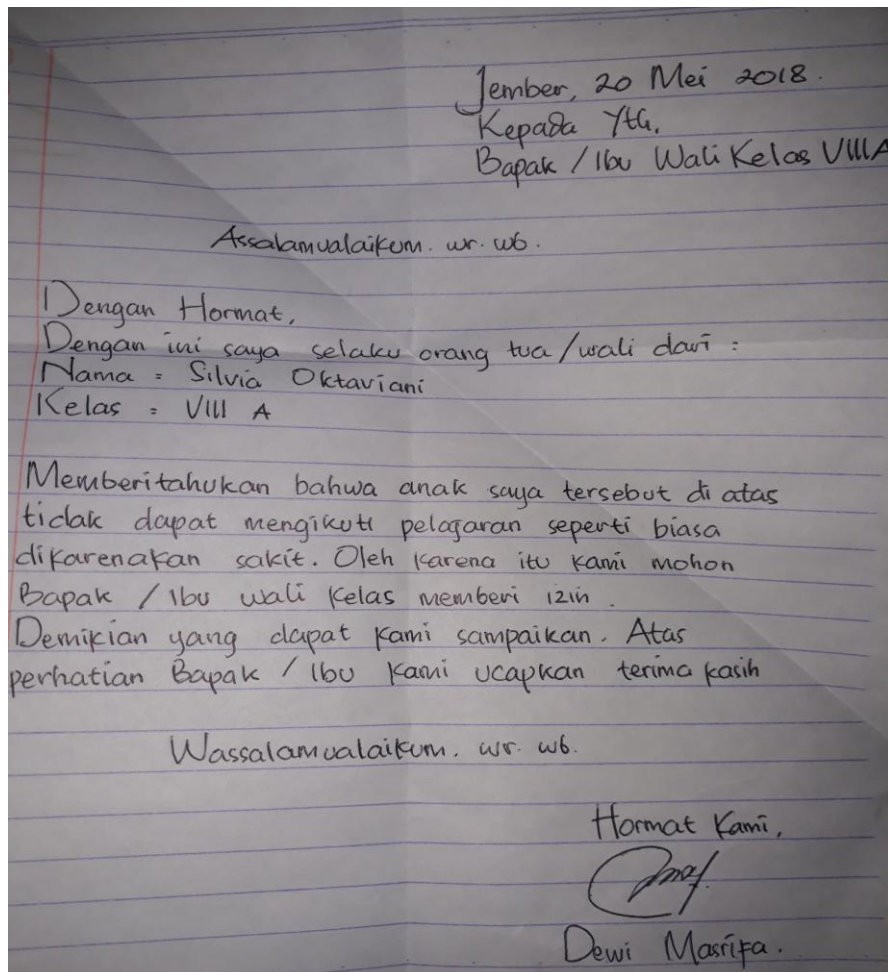 Jember, 20 Mei 2018.
Kepada Yth.
Bapak / Ibu Wali Kelas VIII A
Assalamualaikum. wr. wb.
Dengan Hormat,
Dengan ini saya selaku orang tua/wali dari :
Nama = Silvia Oktaviani
Kelas = VIII A
Memberitahukan bahwa anak saya tersebut di atas
tidak dapat mengikuti pelajaran seperti biasa
dikarenakan sakit. Oleh karena itu kami mohon
Bapak / Ibu wali kelas memberi izin.
Demikian yang dapat kami sampaikan. Atas
perhatian Bapak / Ibu kami ucapkan terima kasih
Wassalamualaikum. wr. wb.
Hormat Kami,
Dewi Masrifa.